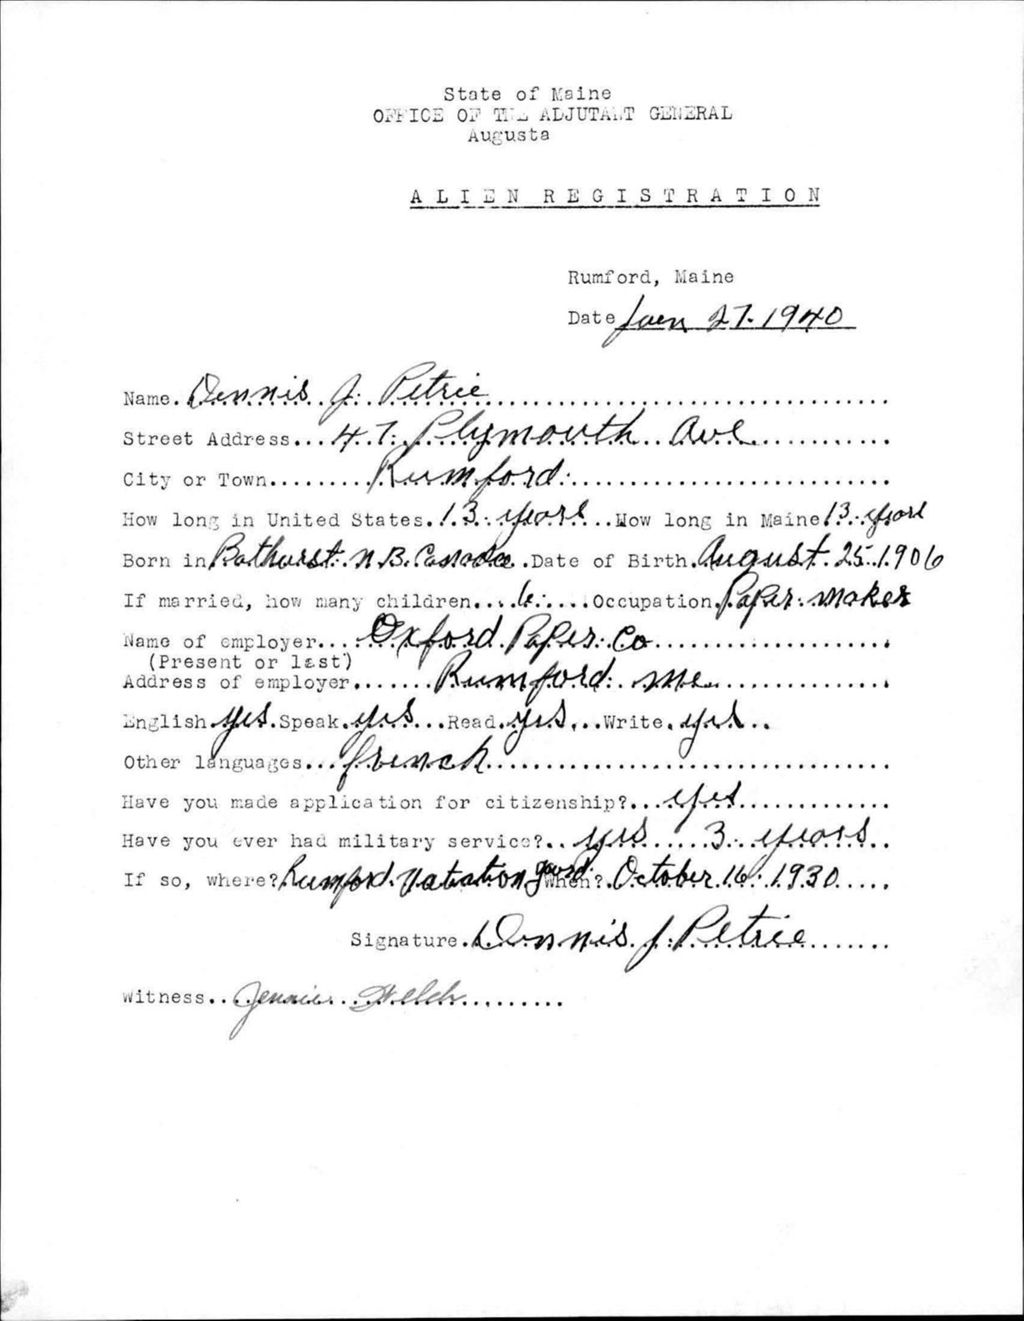 State of Maine
OFFICE OF THE ADJUTANT GENERAL
Augusta
ALIEN REGISTRATION
Rumford, Maine
Date Jan 27. 1940
Name. Dennis J. Petrie
Street Address... 47. Plymouth Ave
City or Town......... Rumford.
How long in United States. 13. years... How long in Maine 13. years
Born in Bathurst. N.B. Canada. Date of Birth. August. 25. 1906
If married, how many children.... 6.... Occupation. Paper. maker
Name of employer.... Oxford Paper. Co
(Present or last)
Address of employer....... Rumford. Me
English yes. Speak. yes... Read. yes... Write. yes..
Other languages... french
Have you made application for citizenship?... yes
Have you ever had military service?.. yes.... 3. years..
If so, where? Rumford. Natation guard. When?. October. 16. 1930.....
Signature. Dennis. J. Petrie
Witness.. Jennie... Welch